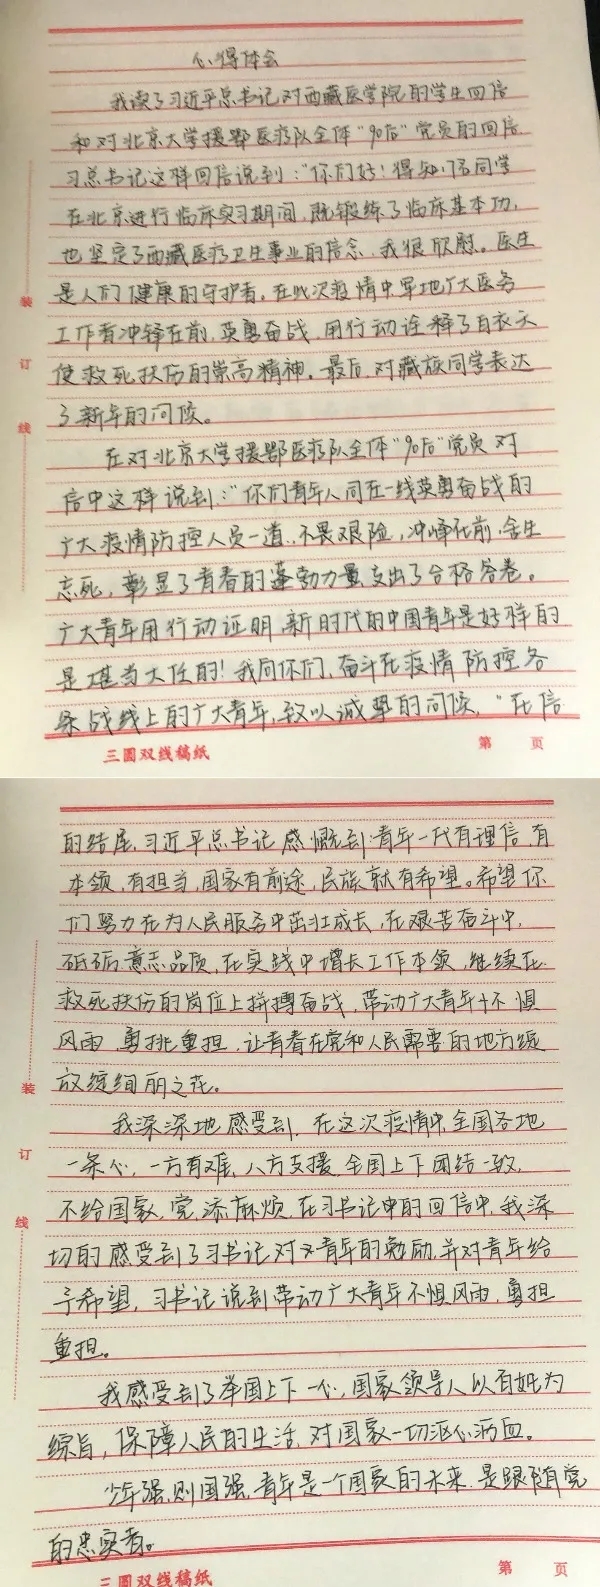 心得体会
我读了习近平总书记对西藏医学院的学生回信
和对北京大学援鄂医疗队全体"90后"党员的回信
习总书记这样回信说到："你们好！得知17名同学
在北京进行临床实习期间,既锻练了临床基本功,
也坚定了西藏医疗卫生事业的信念,我很欣慰。医生
是人们健康的守护者。在此次疫情中军地广大医务
工作者冲锋在前,英勇奋战,用行动诠释了白衣天
使救死扶伤的崇高精神。最后,对藏族同学表达
了新年的问候。
在对北京大学援鄂医疗队全体"90后"党员对
信中这样说到："你们青年人同在一线英勇奋战的
广大疫情防控人员一道,不畏艰险,冲峰在前,舍生
忘死,彰显了青春的蓬勃力量,交出了合格答卷。
广大青年用行动证明,新时代的中国青年是好样的
是堪当大任的！我向你们,奋斗在疫情防控各
条战线上的广大青年,致以诚挚的问候,"在信
三圆双线稿纸
第 页
的结尾,习近平总书记感慨到:青年一代有理信,有
本领,有担当,国家有前途,民族就有希望。希望你
们努力在为人民服务中茁壮成长,在艰苦奋斗中,
砥砺意志品质,在实践中增长工作本领,继续在
救死扶伤的岗位上拼搏奋战,带动广大青年不惧
风雨 勇挑重担,让青春在党和人民需要的地方绽
放绚丽之花。
我深深地感受到,在这次疫情中,全国各地
一条心,一方有难,八方支援,全国上下团结一致,
不给国家,党,添麻烦,在习书记中的回信中,我深
切的感受到了习书记对青年的勉励,并对青年给
予希望,习书记说到带动广大青年不惧风雨,勇担
重担。
我感受到了举国上下一心,国家领导人以百姓为
综旨,保障人民的生活,对国家一切沤心沥血。
少年强,则国强,青年是一个国家的未来,是跟随党
的忠实者。
三圆双线稿纸
第 页
装
订
线
装
订
线